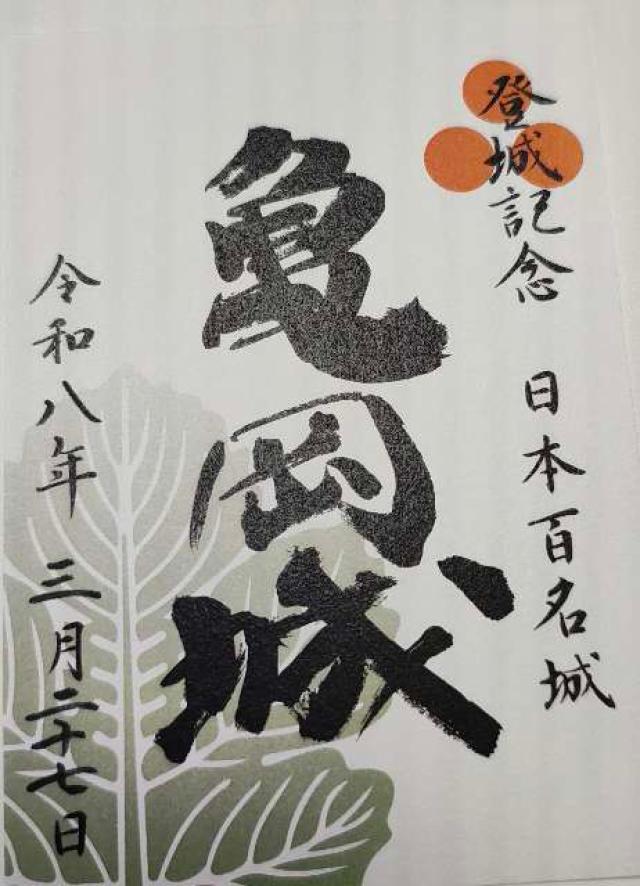 登城記念 日本百名城
亀岡城
令和八年 三月二十七日